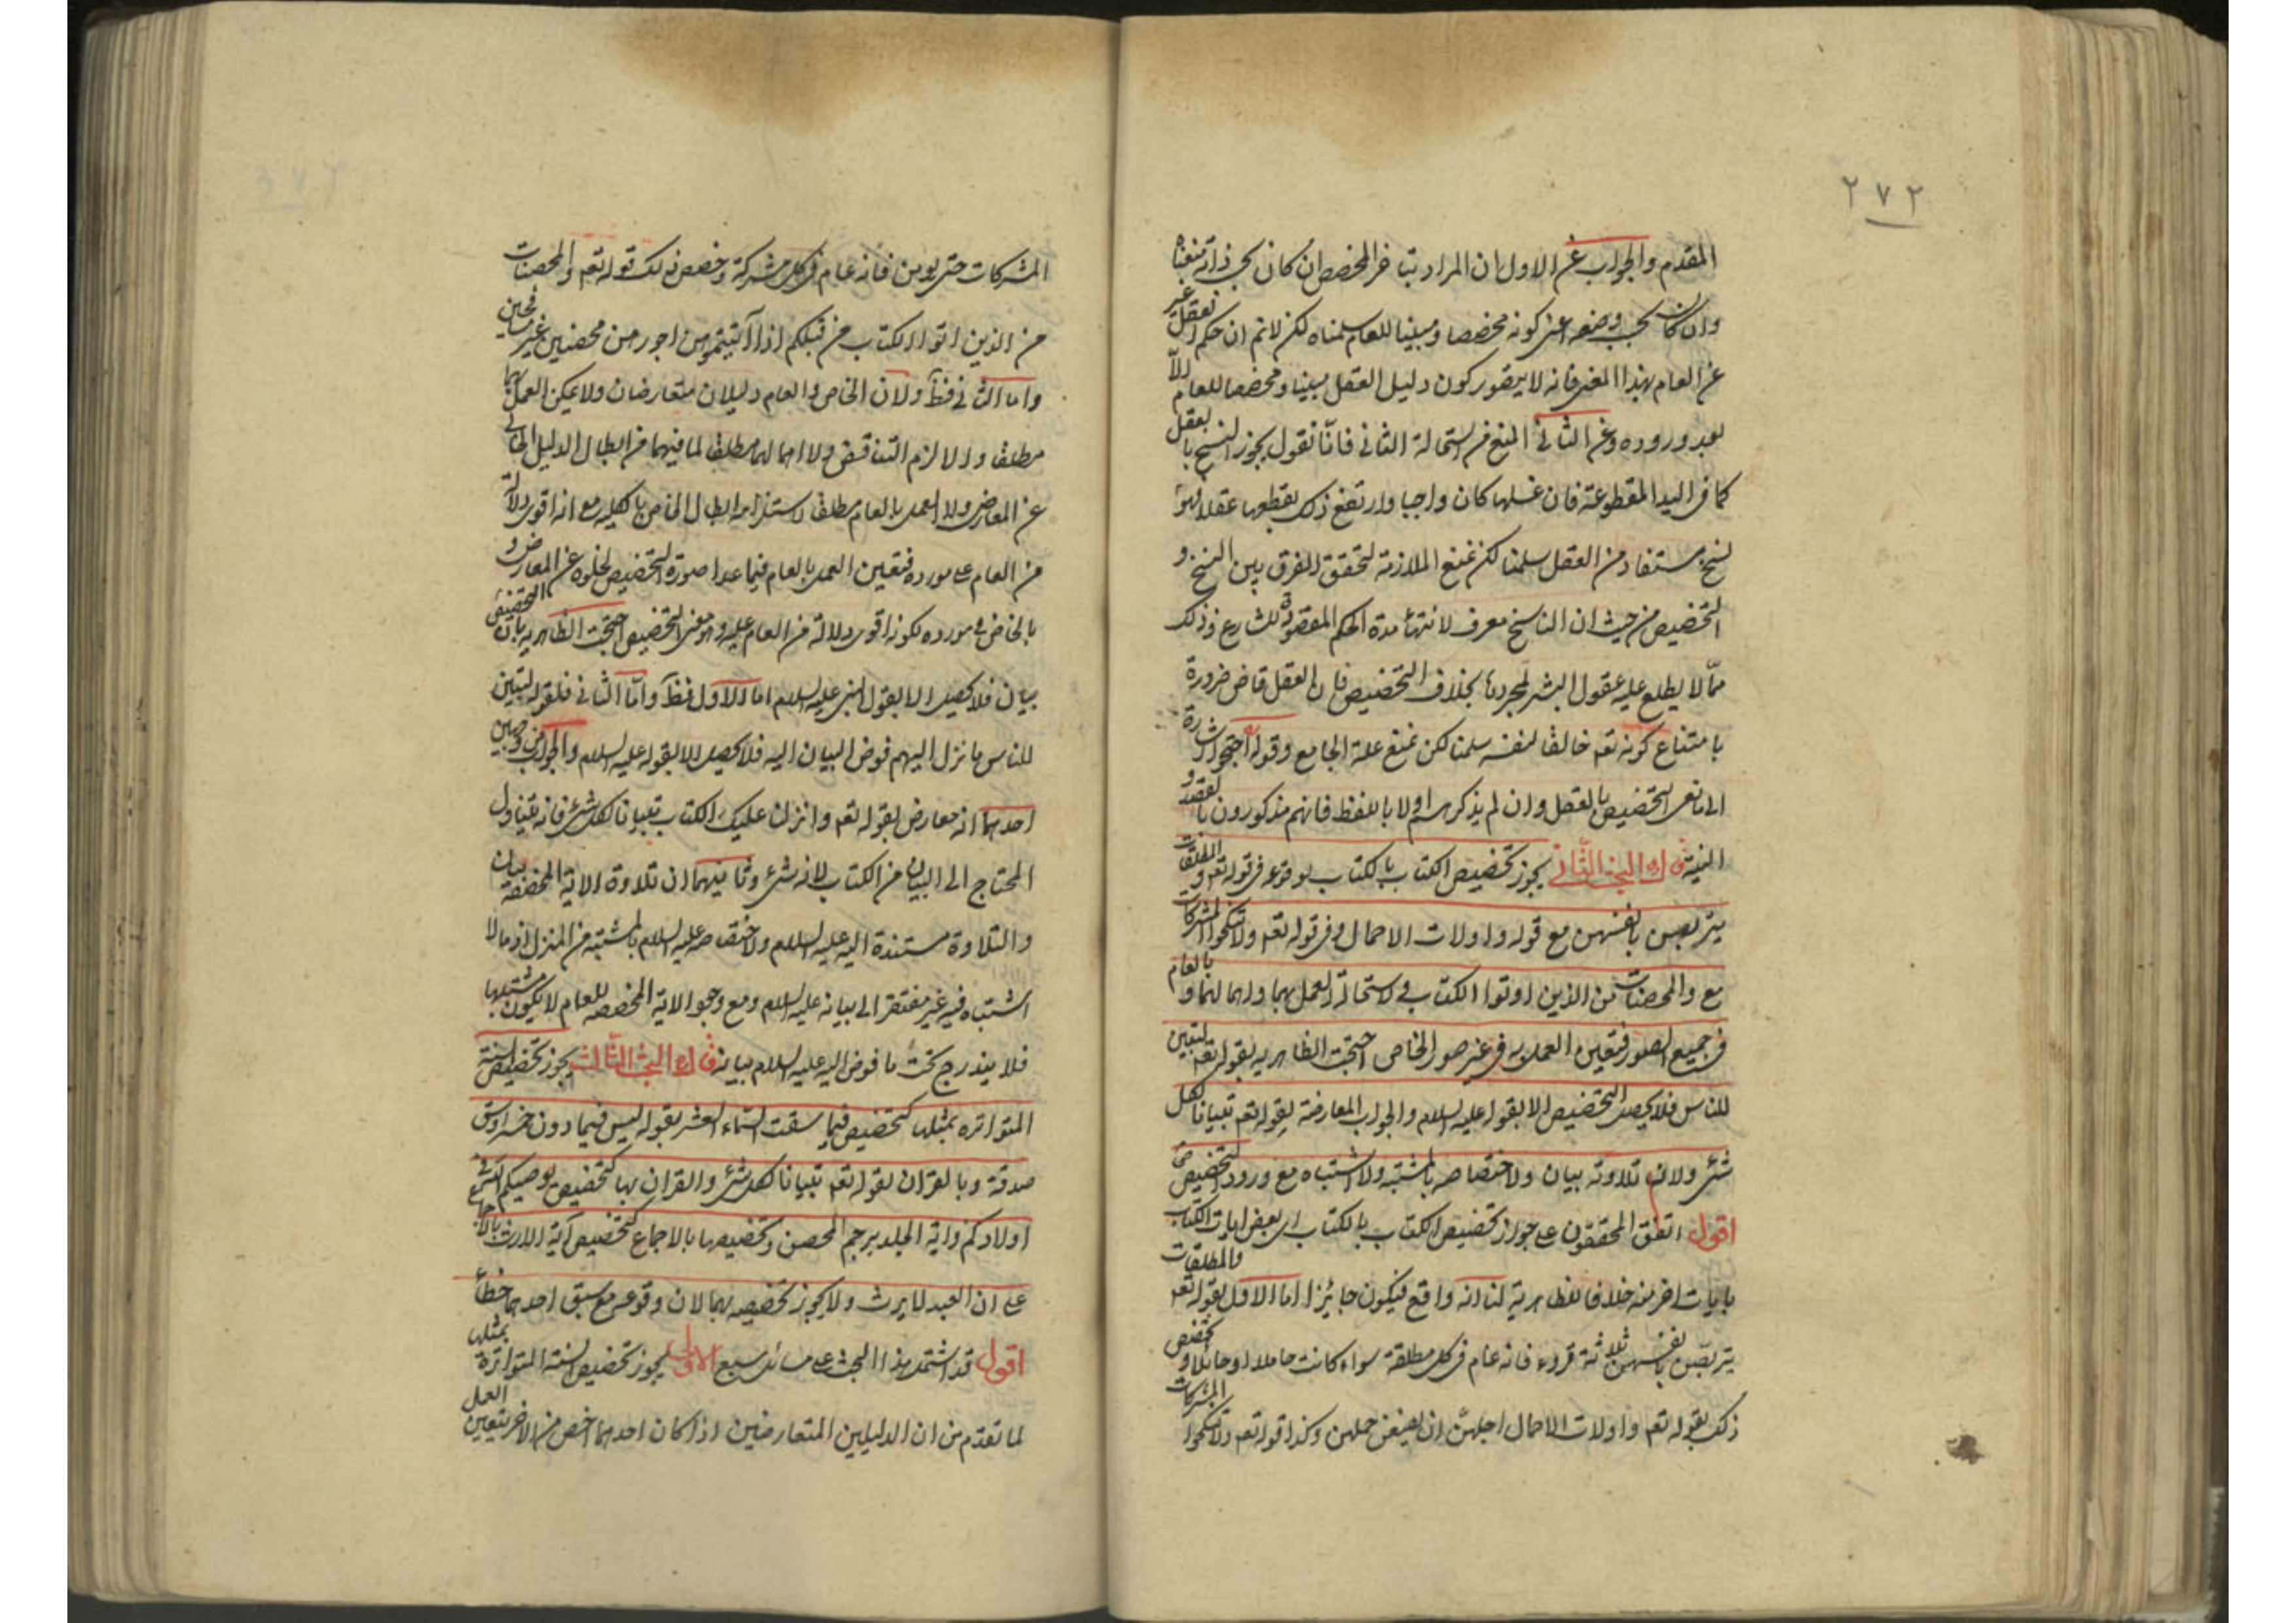 ٢٧٢
المقدم والجواب عن الاول ان المراد بتأخر المخصص ان كان بحسب ذاته منعناه
وان كان بحسب وصفه اعنى كونه مخصصا ومبينا للعام سلمناه لكن لا نم ان حكم العقل غير
عن العام بهذا المعنى فانه لا يتصور كون دليل العقل مبينا ومخصصا للعام الا
بعد وروده وعن الثانى المنع من استحالة الثانى فانا نقول يجوز النسخ بالعقل
كما فى اليد المقطوعة فان غسلها كان واجبا وارتفع ذلك بقطعها عقلا فهو
نسخ مستفاد من العقل سلمنا لكن نمنع الملازمة لتحقق الفرق بين النسخ و
التخصيص من حيث ان الناسخ معرف لانتهاء مدة الحكم المقصودة للشارع وذلك
مما لا يطلع عليه عقول البشر لمجردها بخلاف التخصيص فان العقل قاض ضرورة
بامتناع كونه تعه خالقا لنفسه سلمنا لكن نمنع علة الجامع وقوله احتجوا اشارة
الى مانعى التخصيص بالعقل وان لم يذكرهم اولا باللفظ فانهم مذكورون بالقصد و
النية قال البحث الثانى يجوز تخصيص الكتاب بالكتاب لوقوعه فى قوله تعه والمطلقات
يتربصن بانفسهن مع قوله واولات الاحمال وفى قوله تعه ولا تنكحوا المشركات
مع والمحصنات من الذين اوتوا الكتاب ولاستحالة العمل بهما واهمالهما وبالعام
فى جميع الصور فتعين العمل به فى غير صور الخاص احتجت الظاهرية بقوله تعه لتبين
للناس فلا يحصل التخصيص الا بقوله عليه السلام والجواب المعارضة بقوله تعه تبيانا لكل
شئ ولان تلاوته بيان ولاختصاصه بالمشتبه ولا اشتباه مع ورود التخصيص
اقول اتفق المحققون على جواز تخصيص الكتاب بالكتاب اى بعض ايات الكتاب
بايات اخر منه خلافا للظاهرية لنا انه واقع فيكون جائزا اما الاول لقوله تعه والمطلقات
يتربصن بانفسهن ثلاثة قروء فانه عام فى كل مطلقة سواء كانت حاملا او حائلا وخصص
ذلك بقوله تعه واولات الاحمال اجلهن ان يضعن حملهن وكذا قوله تعه ولا تنكحوا المشركات
المشركات حتى يؤمن فانه عام فى كل مشركة وخصص ذلك قوله تعه والمحصنات
من الذين اوتوا الكتاب من قبلكم اذا آتيتموهن اجورهن محصنين غير مسافحين
واما الثانى فظ ولان الخاص والعام دليلان متعارضان ولا يمكن العمل بهما
مطلقا والا لزم التناقض ولا اهمالهما مطلقا لما فيهما من ابطال الدليل الخالى
عن المعارض ولا العمل بالعام مطلقا لاستلزامه ابطال الخاص بالكلية مع انه اقوى دلالة
من العام على مورده فتعين العمل بالعام فيما عدا صورة التخصيص لخلوه عن المعارض و
بالخاص فى مورده لكونه اقوى دلالة من العام عليه وهو معنى التخصيص احتجت الظاهرية بان التخصيص
بيان فلا يحصل الا بقول النبى عليه السلام اما الاول فظ واما الثانى فلقوله لتبين
للناس ما نزل اليهم فوض البيان اليه فلا يحصل الا بقوله عليه السلام والجواب من وجهين
احدهما انه معارض بقوله تعه وانزلنا عليك الكتاب تبيانا لكل شئ فانه يتناول
المحتاج الى البيان من الكتاب لانه شئ وثانيهما ان تلاوة الاية المخصصة بيان
والتلاوة مستندة اليه عليه السلام ولاختصاصه عليه السلام بالمشتبه من المنزل اذ ما لا
اشتباه فيه غير مفتقر الى بيانه عليه السلام ومع وجود الاية المخصصة للعام لا يكون مشتبها
فلا يندرج تحت ما فوض اليه عليه السلام بيانه قال البحث الثالث يجوز تخصيص السنة
المتواترة بمثلها كتخصيص فيما سقت السماء العشر بقوله ليس فيما دون خمسة اوسق
صدقة وبالقران لقوله تعه تبيانا لكل شئ والقران بها كتخصيص يوصيكم الله فى
اولادكم واية الجلد برجم المحصن وتخصيصها بالاجماع كتخصيص آية الارث بالاجماع
على ان العبد لا يرث ولا يجوز تخصيصه بهما لان وقوعه مع سبق احدهما خطأ
اقول قد اشتمل هذا البحث على مسائل سبع الاولى يجوز تخصيص السنة المتواترة بمثلها
لما تقدم من ان الدليلين المتعارضين اذا كان احدهما اخص من الاخر يتعين العمل